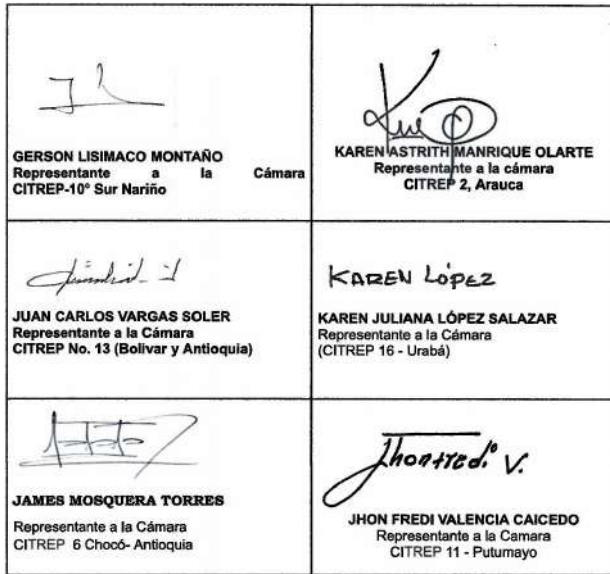 GERSON LISIMACO MONTAÑO
Representante a la Cámara
CITREP-10° Sur Nariño
KAREN ASTRITH MANRIQUE OLARTE
Representante a la cámara
CITREP 2, Arauca
JUAN CARLOS VARGAS SOLER
Representante a la Cámara
CITREP No. 13 (Bolivar y Antioquia)
KAREN LÓPEZ
KAREN JULIANA LÓPEZ SALAZAR
Representante a la Cámara
(CITREP 16 - Urabá)
JAMES MOSQUERA TORRES
Representante a la Cámara
CITREP 6 Chocó- Antioquia
Jhonfredi V.
JHON FREDI VALENCIA CAICEDO
Representante a la Camara
CITREP 11 - Putumayo